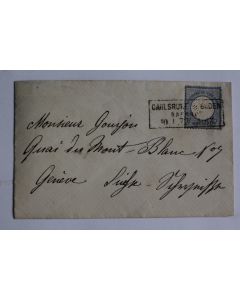 CARLSRUHE I. BADEN
BAHNHOF
Monsieur Gourjon
Quai du Mont-Blanc No 7
Genève Suisse-Schweiz